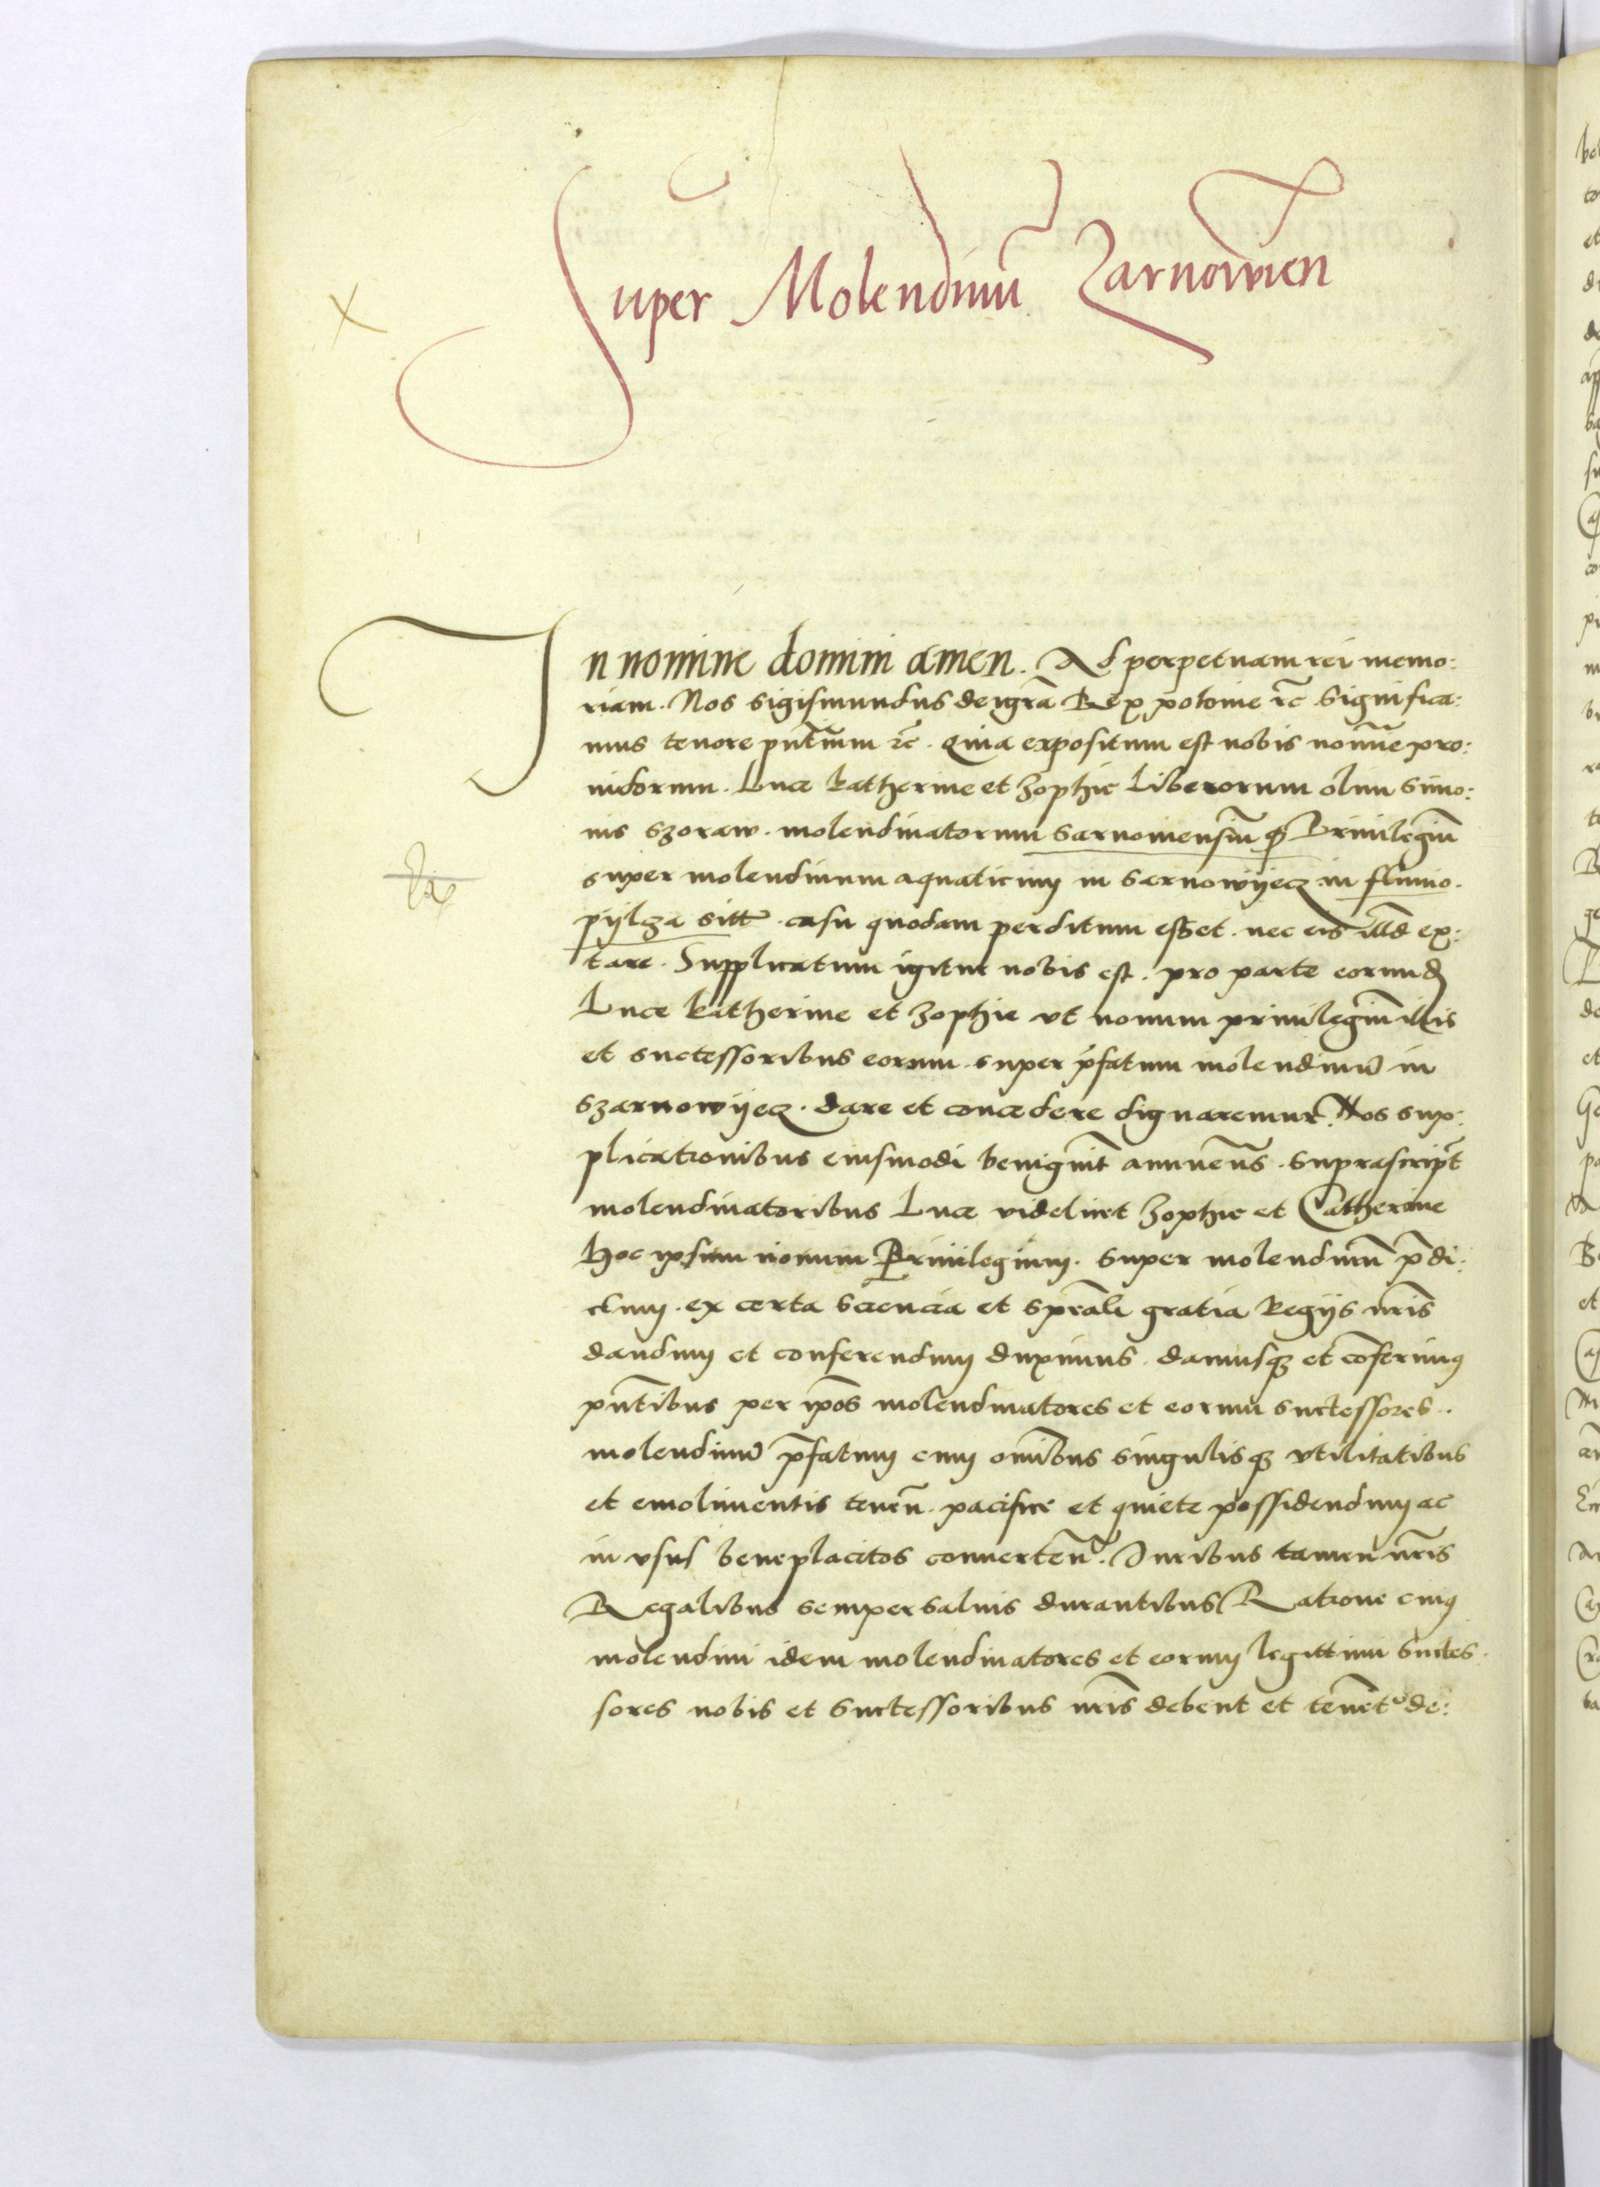 Super Molendinũ Zarnowien
In nomine domini amen. Ad perpetuam rei memo:
riam. Nos Sigismundus dei grã Rex polonie rc̃ Significa:
mus tenore pñtium rc̃. Quia expositum est nobis noĩe pro:
uidorum. Luce Katherine et Zophie Liberorum olim Simo:
nis Szoraw. molendinatorum Sarnouiensiũ ꝙ Priuilegiũ
super molendinum aquaticum in Sarnowyecz in fluuio.
pylza sitũ casu quodam perditum esset. nec eis illud ex:
tare. Supplicatum igitur nobis est. pro parte eorund
Luce Katherine et Zophie vt nouum priuilegiũ illis
et successoribus eorum super p̃fatum molendinũ in
Szarnowyecz. dare et concedere dignaremur. Nos sup:
plicationibus eiusmodi benignit̃ annuen̄s. suprascript̃
molendinatoribus Luce videlicet Zophie et Catherine
Hoc ipsum nouum Priuilegium. super molendinũ p̃di:
ctum. ex certa Sciencia et Sp̃ali gratia Regijs nr̃is
dandum et conferendum duximus. damusqꝫ et cõferimꝯ
pñtibus per ip̃os molendinatores et eorum successores.
molendinũ p̃fatum cum om̃ibus singulisqꝫ vtilitatibus
et emolimentis tenen̄. pacifice et quiete possidendum ac
in vsus beneplacitos conuerten̄. Iuribus tamen nr̃is
Regalibus semper saluis durantibus Ratione cuiꝯ
molendini idem molendinatores et eorum legittimi succes
sores nobis et Successoribus nr̃is debent et tenẽt' de: